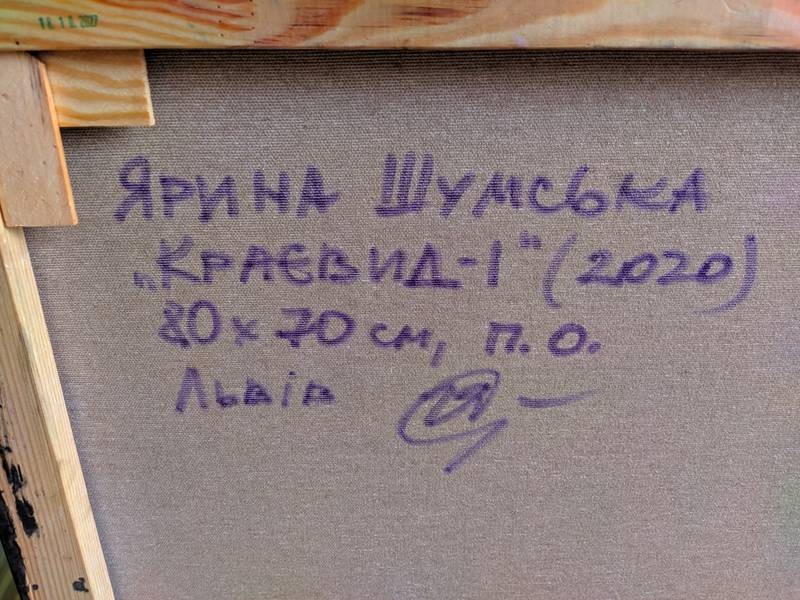 Ярина Шумська
„Краєвид-1" (2020)
80 x 70 см, п.о.
Львів